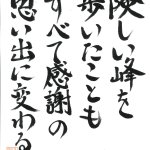 険しい峰を
歩いたことも
すべて感謝の
思い出に変わる